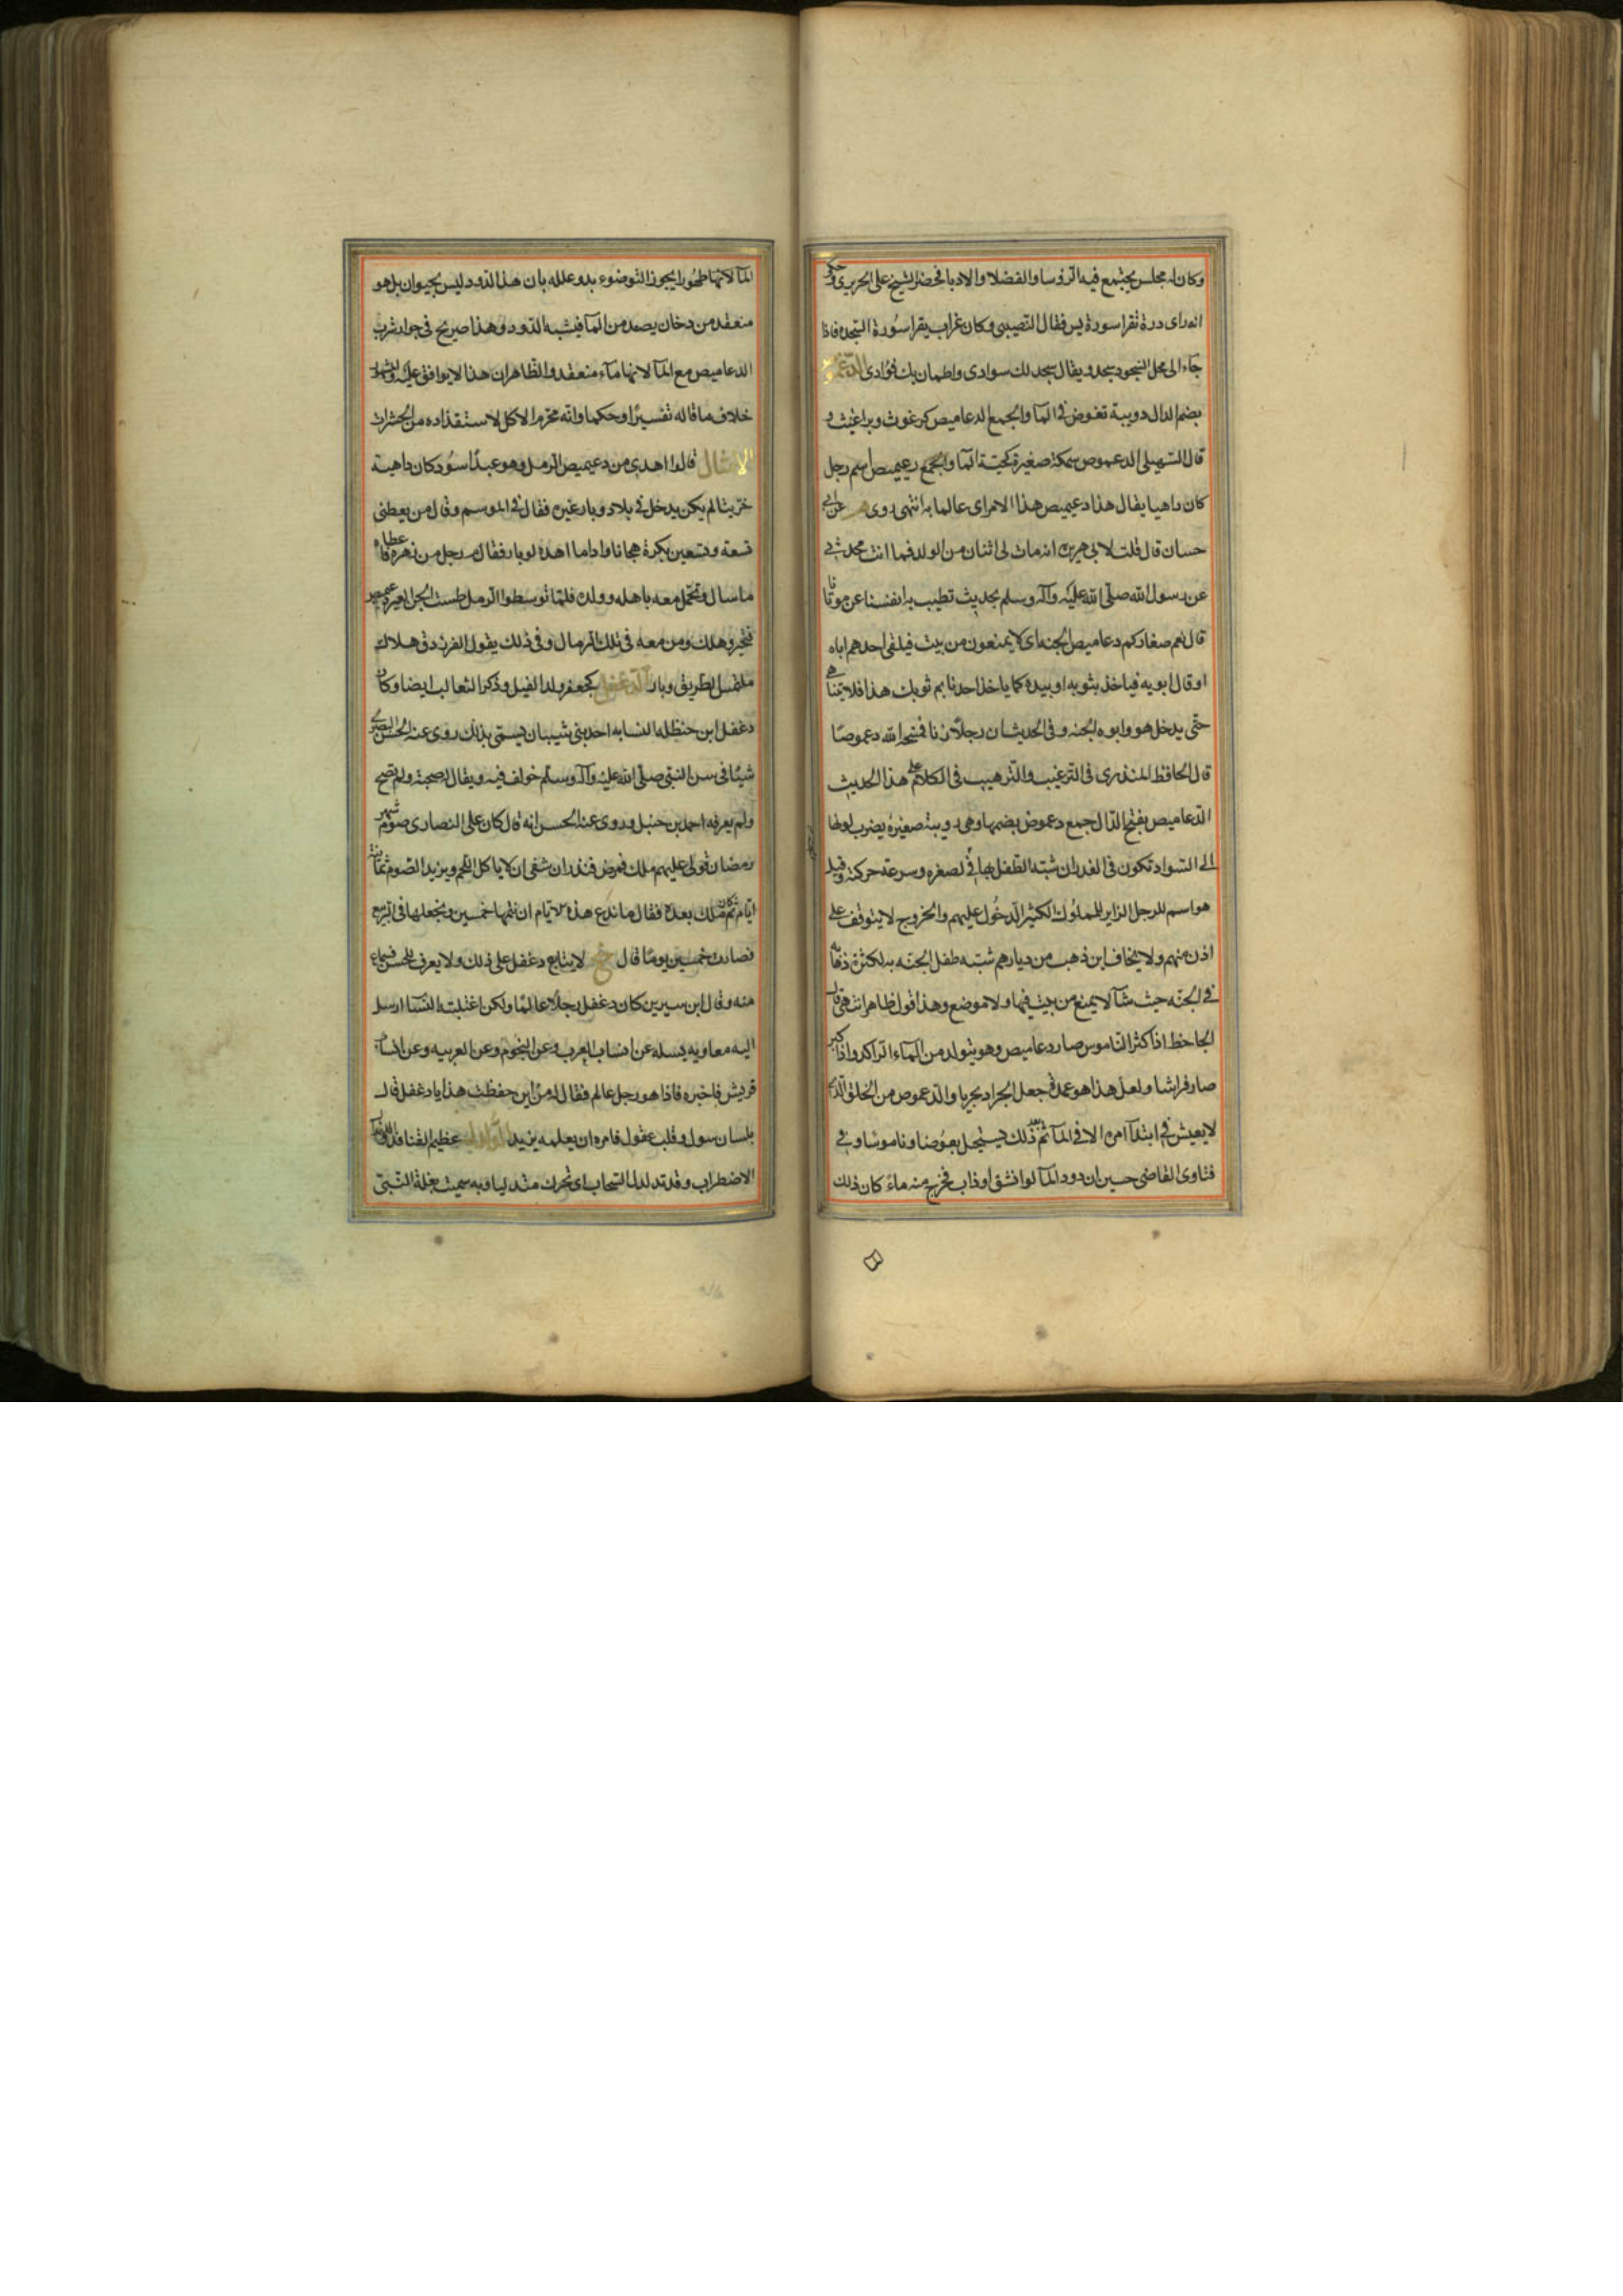 وكان له مجلس يجتمع فيه الرؤسا والفضلا والادبا فحضر الشيخ على الحريرى وحكى
انه راى درة تقرا سورة يس فقال النصيبى وكان غراب يقرا سورة السجده فاذا
جآء الى محل السجود سجد ويقال سجد لك سوادى واطمان بك فوادى الدعموص
بضم الدال دويبة تغوص فى المآ والجمع الدعاميص كبرغوث وبراغيث و
قال السهيلى الدعموص سمكة صغيرة كحية المآ والجمع دعيميص اسم رجل
كان داهيا يقال هذا دعيميص هذا الامر اى عالما به انتهى روى م عن ابى
حسان قال قلت لابى هريره انه مات لى اثنان من الولد فما انت محدثى
عن رسول الله صلى الله عليه وآله وسلم بحديث تطيب به انفسنا عن موتانا
قال نعم صغاركم دعاميص الجنه اى لا يمنعون من بيت فيلقى احدهم اباه
او قال ابويه فياخذ بثوبه او بيده كما ياخذ احدنا بم ثوبك هذا فلا يتناهى
حتى يدخل هو وابوه الجنه وفى الحديث ان رجلا زنا فمسخه الله دعموصا
قال الحافظ المنذرى فى الترغيب والترهيب فى الكلام على هذا الحديث
الدعاميص بفتح الدال جمع دعموص بضمها وهى دويبة صغيرة يضرب لونها
الى السواد تكون فى الغدران شبه الطفل بها فى لصغره وسرعة حركته وقيل
هو اسم للرجل الزاير للملوك الكثير الدخول عليهم والخروج لا يتوقف على
اذن منهم ولا يخاف اين ذهب من ديارهم شبه طفل الجنه به لكثرة ذهابه
فى الجنه حيث شآ لا يمنع من بيت فيها ولا موضع وهذا قول ظاهر انتهى قال
الجاحظ اذا كثر الناموس صار دعاميص وهو يتولد من المآء الراكد واذا كبر
صار فراشا ولعل هذا هو عمدة جعل الجراد بحريا والدعموص من الخلق الذى
لا يعيش فى ابتدآ امره الا فى المآ ثم بعد ذلك يستحيل بعوضا وناموسا وفى
فتاوى القاضى حسين ان دود المآ لو انشق او ذاب فخرج منه مآء كان ذلك
المآ لانها طهورا يجوز التوضوء به وعلله بان هذا الدود ليس بحيوان بل هو
منعقد من دخان يصعد من المآ فيشبه الدود وهذا صريح فى جواز شرب
الدعاميص مع المآ لانها مآء منعقد والظاهر ان هذا لا يوافق عليه
خلاف ما قاله تفسيرا وحكما وانه محرم الاكل لاستقذاره من الحشرات
الامثال قالوا اهدى من دعيميص الرمل وهو عبد اسود كان داهية
خريتا لم يكن يدخل فى بلاد وبار غيره فقال فى الموسم وقال من يعطنى
تسعة وتسعين بكرة هجانا وادما اهده لوبار فقال رجل من مهره فاعطاه
ما سال وتحمل معه باهله وولده فلما توسطوا الرمل طمست الجن
فتحير وهلك ومن معه فى تلك الرمال وفى ذلك يقول الفرزدق كهلاك
ملتمس الطريق وبار الدغفل كجعفر ولد الفيل وذكر الثعالب ايضا وكان
دغفل ابن حنظله النسابه احد بنى شيبان يسمى بذلك روى عنه الحسن البصرى
شيئا فى سن النبى صلى الله عليه وآله وسلم خولف فيه ويقال له صحبة ولم تصح
ولم يعرفه احمد بن حنبل وروى عنه الحسن انه قال كان على النصارى صوم شهر
رمضان فولى عليهم ملك فمرض فنذر ان شفى ان لا ياكل اللحم ويزيد الصوم ثمانية
ايام ثم كان ملك بعده فقال ما ندع هذه الايام ان نتمها خمسين ونجعلها فى الربيع
فصارت خمسين يوما قال خ لا يتابع دغفل على ذلك ولا يعرف للحسن سماع
منه وقال ابن سيرين كان دغفل رجلا عالما ولكن اغتلبته النسا ارسل
اليه معاويه يسله عن انساب العرب وعن النجوم وعن العربيه وعن انساب
قريش فاخبره فاذا هو رجل عالم فقال له من اين حفظت هذا يا دغفل قال
بلسان سول وقلب عقول فامره ان يعلمه يزيد الدلدل عظيم القنافذ
الاضطراب وقد تدلدل السحاب اى تحرك متدليا وبه سميت بغلة النبى